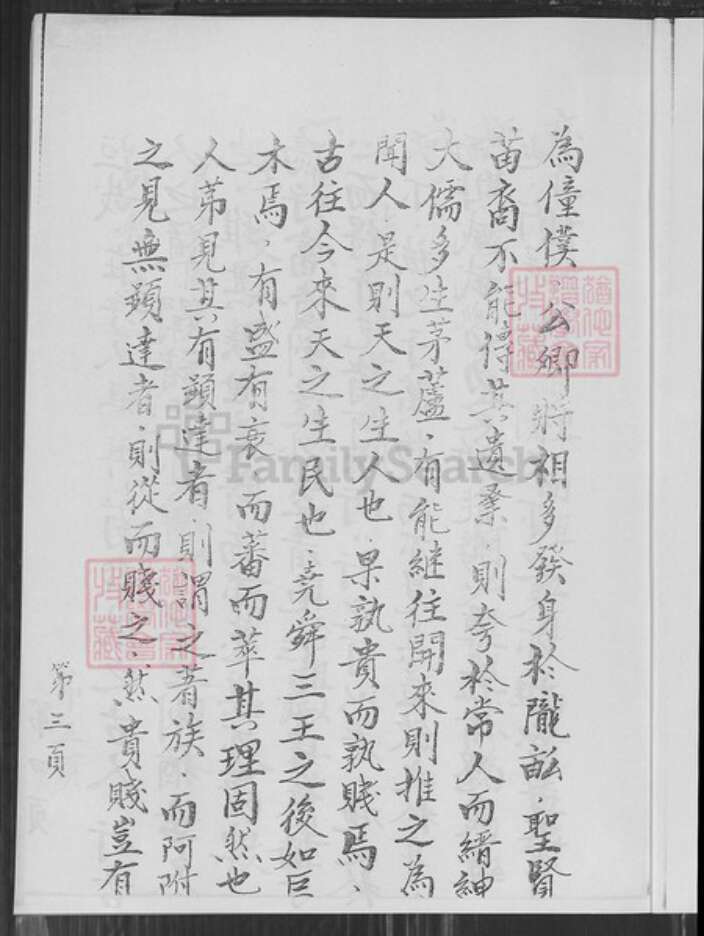 為僮僕公卿將相多發身於隴畝．聖賢
苗裔不能傳其遺業．則夸於常人而縉紳
大儒多生茅蘆．有能繼往開來則推之為
聞人．是則天之生人也．果孰貴而孰賤焉、
古往今來天之生民也．堯舜三王之後如巨
木焉．有盛有衰而蕃而萃其理固然也
人苐見其有顯達者．則謂之著族．而阿附
之見無顯達者．則從而賤之．然貴賤豈有
第三頁
FamilySearch